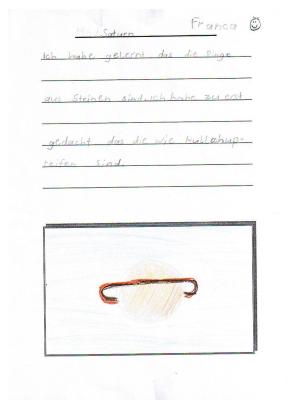 Franca
Saturn
Ich habe gelernt das die Ringe
aus Steinen sind.Ich habe zu erst
gedacht das die wie Hullahup-
reifen sind.